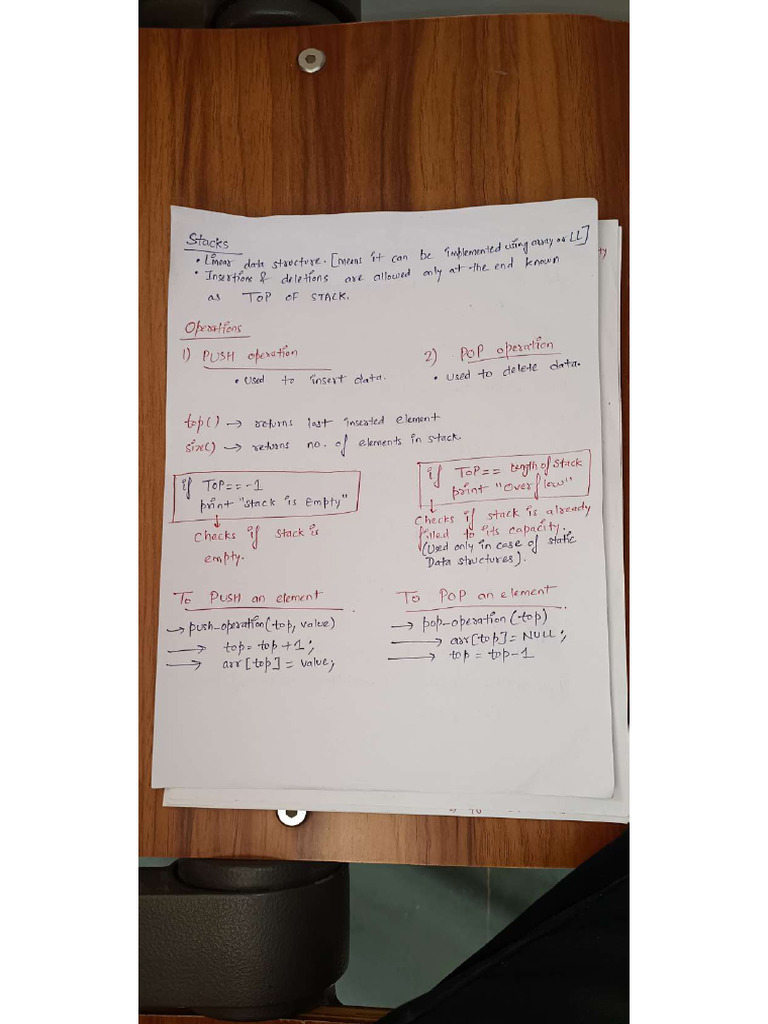 Stacks
• Linear data structure. [means it can be implemented using array or LL]
• Insertions & deletions are allowed only at the end known
as TOP OF STACK.
Operations
1) PUSH operation
• Used to insert data.
2) POP operation
• Used to delete data.
top() → returns last inserted element
size() → returns no. of elements in stack
if TOP == -1
print "stack is Empty"
Checks if stack is
empty.
if TOP == Length of Stack
print "Overflow"
Checks if stack is already
filled to its capacity.
(Used only in case of static
Data structures).
To PUSH an element
→ push-operation(top, value)
→ top = top + 1;
→ arr[top] = value;
To POP an element
→ pop-operation(top)
→ arr[top] = NULL;
→ top = top - 1